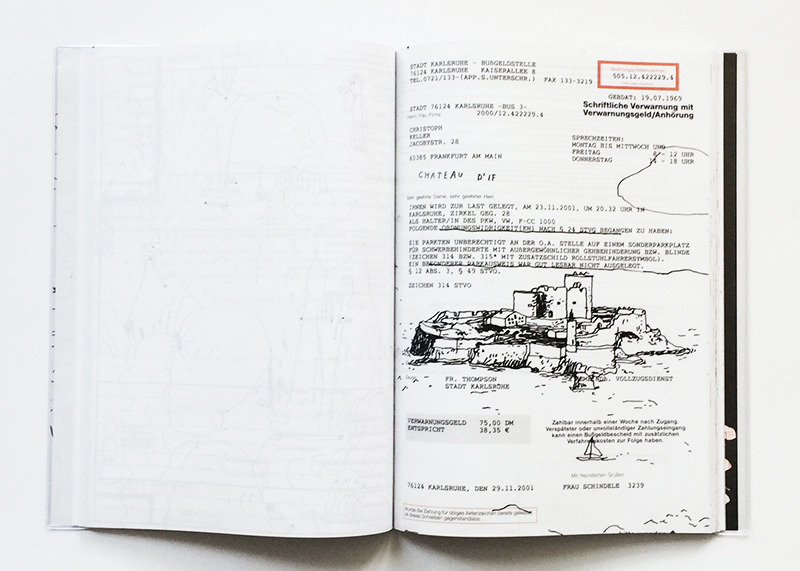 STADT KARLSRUHE - BUßGELDSTELLE
76124 KARLSRUHE KAISERALLEE 8
TEL.0721/133-(APP.S.UNTERSCHR.) FAX 133-3219
505.12.422229.4
GEBDAT: 19.07.1969
Schriftliche Verwarnung mit
Verwarnungsgeld/Anhörung
STADT 76124 KARLSRUHE -BUS 3-
Herrn/Frau/Firma 2000/12.422229.4
CHRISTOPH
KELLER
JACOBYSTR. 28
60385 FRANKFURT AM MAIN
SPRECHZEITEN:
MONTAG BIS MITTWOCH UND
FREITAG 8 - 12 UHR
DONNERSTAG 14 - 18 UHR
CHATEAU D'IF
Sehr geehrte Dame, sehr geehrter Herr,
IHNEN WIRD ZUR LAST GELEGT, AM 23.11.2001, UM 20.32 UHR IN
KARLSRUHE, ZIRKEL GEG. 28
ALS HALTER/IN DES PKW, VW, F-CC 1000
FOLGENDE ORDNUNGSWIDRIGKEIT(EN) NACH § 24 STVG BEGANGEN ZU HABEN:
SIE PARKTEN UNBERECHTIGT AN DER O.A. STELLE AUF EINEM SONDERPARKPLATZ
FÜR SCHWERBEHINDERTE MIT AUßERGEWÖHNLICHER GEHBEHINDERUNG BZW. BLINDE
(ZEICHEN 314 BZW. 315* MIT ZUSATZSCHILD ROLLSTUHLFAHRERSYMBOL).
EIN BESONDERER PARKAUSWEIS WAR GUT LESBAR NICHT AUSGELEGT.
§ 12 ABS. 3, § 49 STVO.
ZEICHEN 314 STVO
FR. THOMPSON
STADT KARLSRUHE
VOLLZUGSDIENST
VERWARNUNGSGELD 75,00 DM
ENTSPRICHT 38,35 €
Zahlbar innerhalb einer Woche nach Zugang.
Verspäteter oder unvollständiger Zahlungseingang
kann einen Bußgeldbescheid mit zusätzlichen
Verfahrenskosten zur Folge haben.
Mit freundlichen Grüßen
76124 KARLSRUHE, DEN 29.11.2001 FRAU SCHINDELE 3239
Wurde die Zahlung für obiges Aktenzeichen bereits geleistet,
ist dieses Schreiben gegenstandslos.